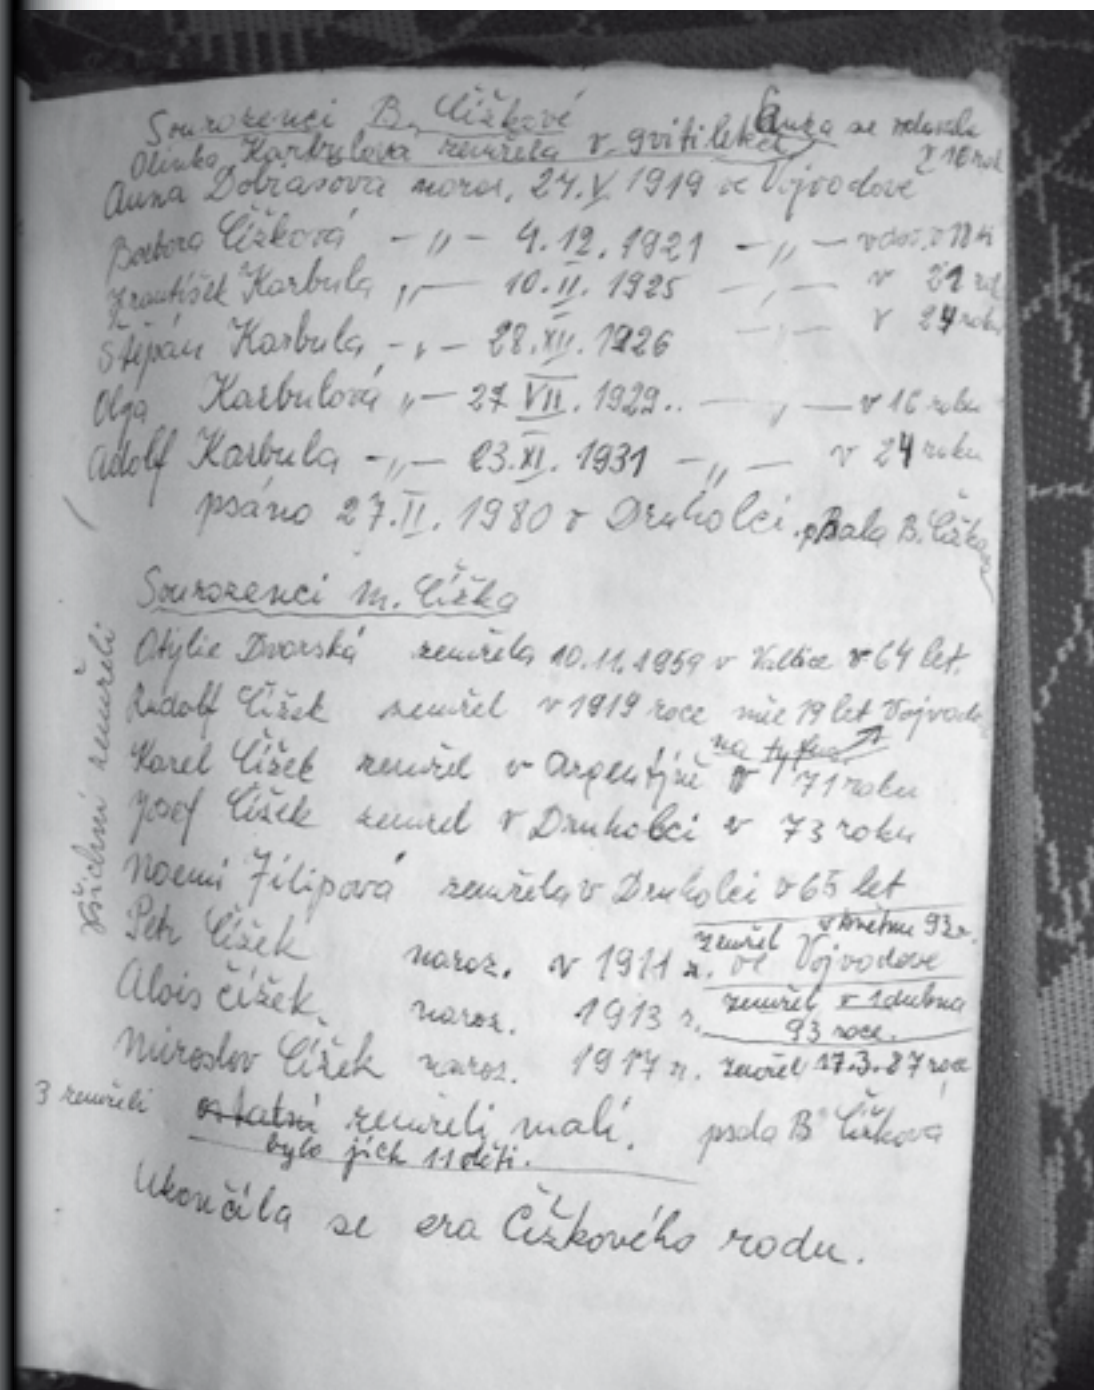 Sourozenci B. Čížkové
Anna se vdávala
v 18 rok
Olinka Karbulová zemřela v 9viti letech
Anna Dobiasová naroz. 24.V. 1919 ve Vojvodově
Barbora Čížková -〃- 4.12.1921 -〃-
František Karbula 〃- 10.II. 1925 -〃- v 21 rok
Štěpán Karbula -〃- 28.XII. 1926 -〃- v 24 roku
Olga Karbulová 〃- 27 VII. 1929.. -〃- v 16 roku
Adolf Karbula -〃- 23.XI. 1931 -〃- v 24 roku
psáno 27.II. 1980 v Drnholci. psala B. Čížková
Sourozenci M. Čížka
Otylie Dvorská zemřela 10.11.1959 v Valtice v 64 let.
Rudolf Čížek zemřel v 1919 roce 19 let Vojvodo
na tyfus
Karel Čížek zemřel v Argentýně v 71 roku
Josef Čížek zemřel v Drnholci v 73 roku
Noemi Filipová zemřela v Drnholci v 65 let
Petr Čížek naroz. v 1911 r. zemřel v květnu 93r.
ve Vojvodove
Alois Čížek. naroz. 1913 r. zemřel v 1 dubna
93 roce.
Miroslov Čížek naroz. 1917 r. zemřel 17.3.87 roce
všichni zemřeli
3 zemřeli ostatní zemřeli malí. psala B Čížková
bylo jich 11 dětí.
Ukončila se era Čížkového rodu.